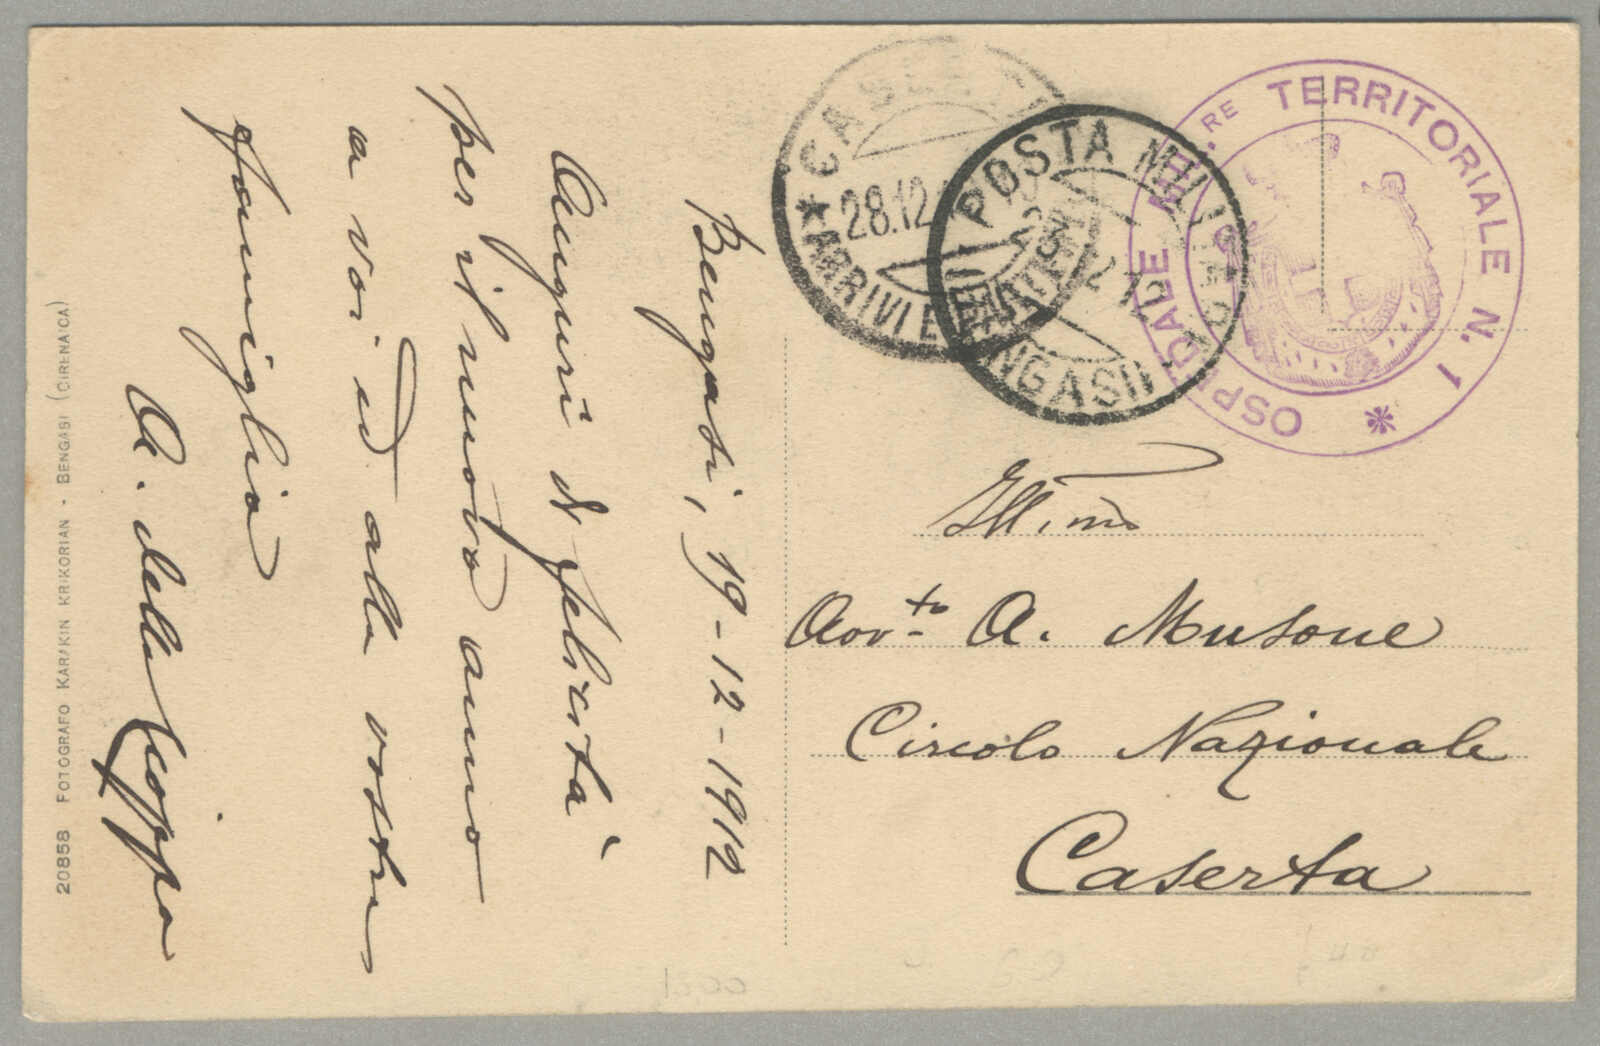 Bengasi, 19-12-1912
Auguri di felicità
per il nuovo anno
a voi ed alla vostra
famiglia
A. della
Ill.mo
Avv.to A. Musone
Circolo Nazionale
Caserta
20858 FOTOGRAFO KARÁKIN KRIKORIAN - BENGASI (CIRENAICA)
CASERTA
28.12
ARRIVI E PARTENZE
POSTA MILITARE
BENGASI
OSPEDALE MIL.RE TERRITORIALE N. 1